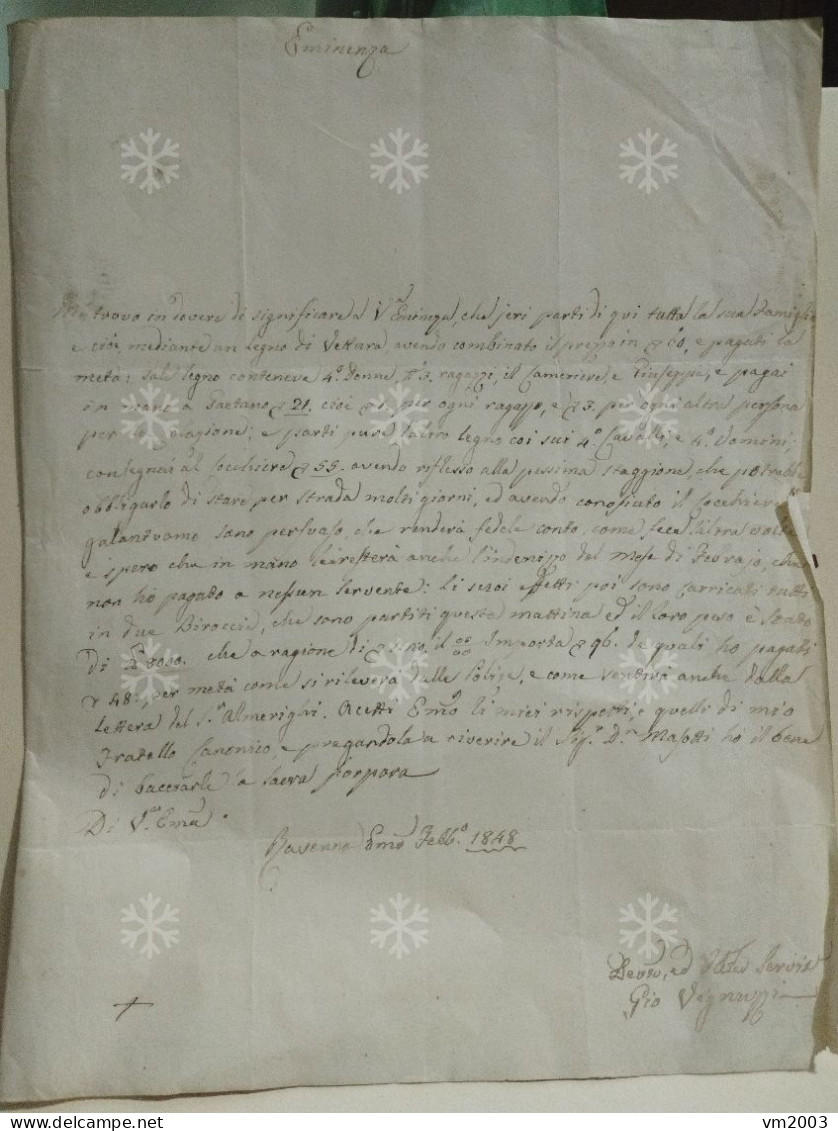 Eminenza
Mi trovo in dovere di significare a V.ª Eminza, che jeri partì di qui tutta la sua Famiglia
e cioè, mediante un legno di Vettura avendo combinato il prezzo in 60, e pagati la
metà: tale legno conteneva 4. Donne, 3. ragazzi, il Cameriere, e Giuseppe, e pagai
in mano a Gaetano 21. cioè per ogni ragazzo, e 3. per ogni altra persona
per colazione; e partì pure l'altro legno coi suoi 4. Cavalli, e 4. Uomini;
consegnai al Cocchiere 55. avendo riflesso alla pessima staggione, che potrebbe
obbligarlo di stare per strada molti giorni, ed avendo conosciuto il Cocchiere
galantuomo sono persuaso, che renderà fedele conto, come fece l'altra volta
e spero che in mano le resterà anche l'indenizo del Mese di Febrajo, che
non ho pagato a nessun servente: li suoi effetti poi sono carricati tutti
in due Biroccie, che sono partiti questa mattina ed il loro peso è stato
di che a ragione di il importa 96. de quali ho pagati
48:, per metà come si rileverà dalle Polize, e come sentirà anche dalla
lettera del S.r Almerighi. Acetti Emo li miei rispetti, e quelli di mio
Fratello Canonico, e pregandola a riverire il Sig.r D.n Masotti hò il bene
di bacciarle la sacra porpora
Di V.ª Emza.
Ravenna Febb.º 1848
Devmo, ed Servit
Gio Vignuzzi
vm2003